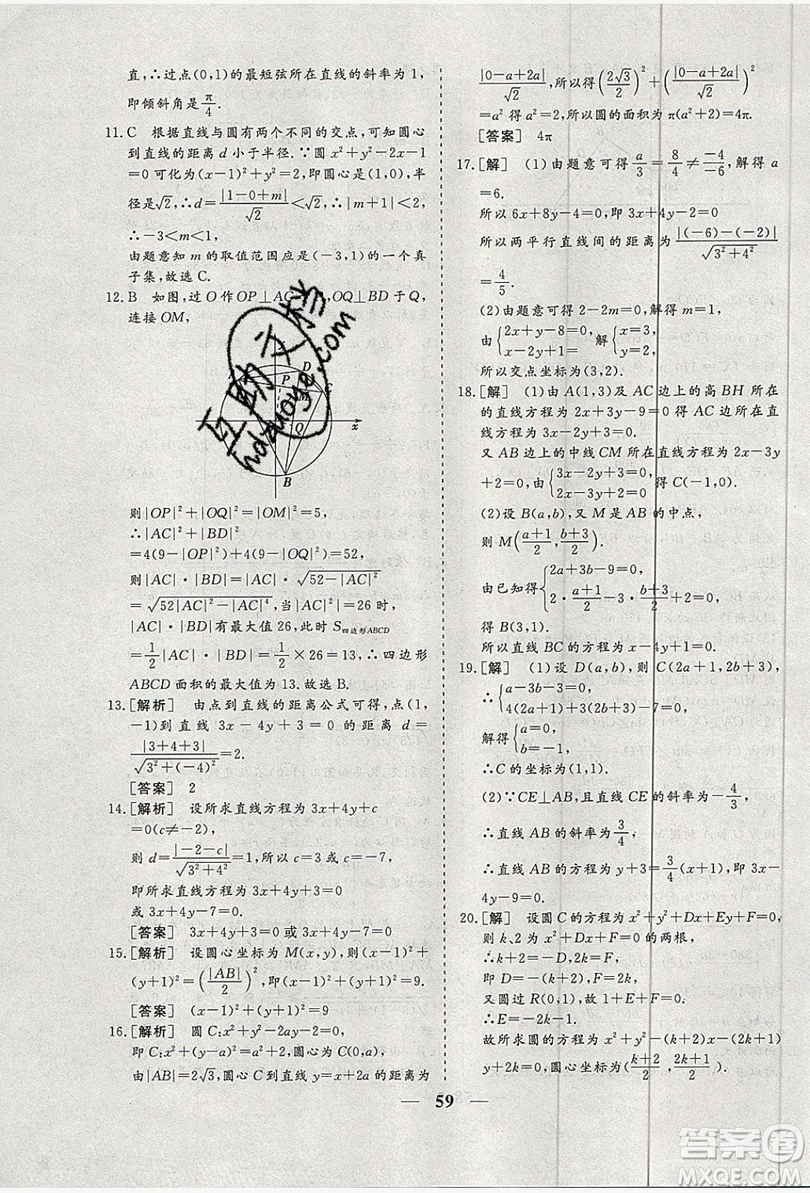 直,∴过点(0,1)的最短弦所在直线的斜率为1,
即倾斜角是π/4.
11.C 根据直线与圆有两个不同的交点,可知圆心
到直线的距离d小于半径.∵圆x²+y²-2x-1
=0可化为(x-1)²+y²=2,即圆心是(1,0),半
径是√2,∴d=|1-0+m|/√2<√2,∴|m+1|<2,
∴-3<m<1,
由题意知m的取值范围应是(-3,1)的一个真
子集,故选C.
12.B 如图,过O作OP⊥AC于P,OQ⊥BD于Q,
连接OM,
P D
C
M
Q
x
B
则|OP|²+|OQ|²=|OM|²=5,
∴|AC|²+|BD|²
=4(9-|OP|²)+4(9-|OQ|²)=52,
则|AC|·|BD|=|AC|·√(52-|AC|²)
=√(52|AC|²-|AC|⁴),当|AC|²=26时,
|AC|·|BD|有最大值26,此时S四边形ABCD
=1/2|AC|·|BD|=1/2×26=13,∴四边形
ABCD面积的最大值为13.故选B.
13.[解析] 由点到直线的距离公式可得,点(1,
-1)到直线3x-4y+3=0的距离d=
|3+4+3|/√(3²+(-4)²)=2.
[答案] 2
14.[解析] 设所求直线方程为3x+4y+c
=0(c≠-2),
则d=|-2-c|/√(3²+4²),所以c=3或c=-7,
即所求直线方程为3x+4y+3=0
或3x+4y-7=0.
[答案] 3x+4y+3=0或3x+4y-7=0
15.[解析] 设圆心坐标为M(x,y),则(x-1)²+
(y+1)²=(|AB|/2)²,即(x-1)²+(y+1)²=9.
[答案] (x-1)²+(y+1)²=9
16.[解析] 圆C:x²+y²-2ay-2=0,
即C:x²+(y-a)²=a²+2,圆心为C(0,a),
由|AB|=2√3,圆心C到直线y=x+2a的距离为
|0-a+2a|/√2,所以得(2√3/2)²+(|0-a+2a|/√2)²
=a²+2,得a²=2,所以圆的面积为π(a²+2)=4π.
[答案] 4π
17.[解] (1)由题意可得a/3=8/4≠-4/-6,解得a
=6.
所以6x+8y-4=0,即3x+4y-2=0,
所以两平行直线间的距离为|(-6)-(-2)|/√(3²+4²)
=4/5.
(2)由题意可得2-2m=0,即m=1,
由{2x+y-8=0 x-2y+1=0 解{x=3, y=2.
所以交点坐标为(3,2).
18.[解] (1)由A(1,3)及AC边上的高BH所在
的直线方程为2x+3y-9=0得AC边所在直
线方程为3x-2y+3=0.
又AB边上的中线CM所在直线方程为2x-3y
+2=0,由{3x-2y+3=0 2x-3y+2=0得C(-1,0).
(2)设B(a,b),又M是AB的中点,
则M((a+1)/2,(b+3)/2).
由已知得{2a+3b-9=0 2·(a+1)/2-3·(b+3)/2+2=0,
得B(3,1).
所以直线BC的方程为x-4y+1=0.
19.[解] (1)设D(a,b),则C(2a+1,2b+3),
∴{a-3b-3=0, 4(2a+1)+3(2b+3)-7=0,
解得{a=0, b=-1,
∴C的坐标为(1,1).
(2)∵CE⊥AB,且直线CE的斜率为-4/3,
∴直线AB的斜率为3/4,
∴直线AB的方程为y+3=3/4(x+1),即3x-
4y-9=0.
20.[解] 设圆C的方程为x²+y²+Dx+Ey+F=0,
则k、2为x²+Dx+F=0的两根,
∴k+2=-D,2k=F,
即D=-(k+2),F=2k,
又圆过R(0,1),故1+E+F=0.
∴E=-2k-1.
故所求圆的方程为x²+y²-(k+2)x-(2k+1)
y+2k=0,圆心坐标为((k+2)/2,(2k+1)/2).
59
互助文档
hdzuoye.com
答案圈
MXQE.COM